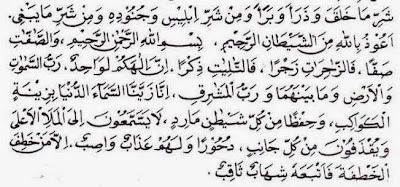 شَرِّ مَا خَلَقَ وَذَرَأَ وَبَرَأَ وَمِنْ شَرِّ اِبْلِيْسَ وَجُنُوْدِهِ وَمِنْ شَرِّ مَا يَبْغِى.
اَعُوْذُ بِاللهِ مِنَ الشَّيْطَانِ الرَّجِيْمِ، بِسْمِ اللهِ الرَّحْمٰنِ الرَّحِيْمِ، وَالصّٰفّٰتِ
صَفًّا، فَالزّٰجِرٰتِ زَجْرًا، فَالتّٰلِيٰتِ ذِكْرًا. اِنَّ اِلٰهَكُمْ لَوَاحِدٌ، رَبُّ السَّمٰوٰتِ
وَالْاَرْضِ وَمَا بَيْنَهُمَا وَرَبُّ الْمَشَارِقِ، اِنَّا زَيَّنَّا السَّمَآءَ الدُّنْيَا بِزِيْنَةِ
الْكَوَاكِبِ، وَحِفْظًا مِنْ كُلِّ شَيْطٰنٍ مَارِدٍ، لَا يَسَّمَّعُوْنَ اِلَى الْمَلَاِ الْاَعْلٰى
وَيُقْذَفُوْنَ مِنْ كُلِّ جَانِبٍ، دُحُوْرًا وَلَهُمْ عَذَابٌ وَاصِبٌ، اِلَّا مَنْ خَطِفَ
الْخَطْفَةَ فَاَتْبَعَهُ شِهَابٌ ثَاقِبٌ.